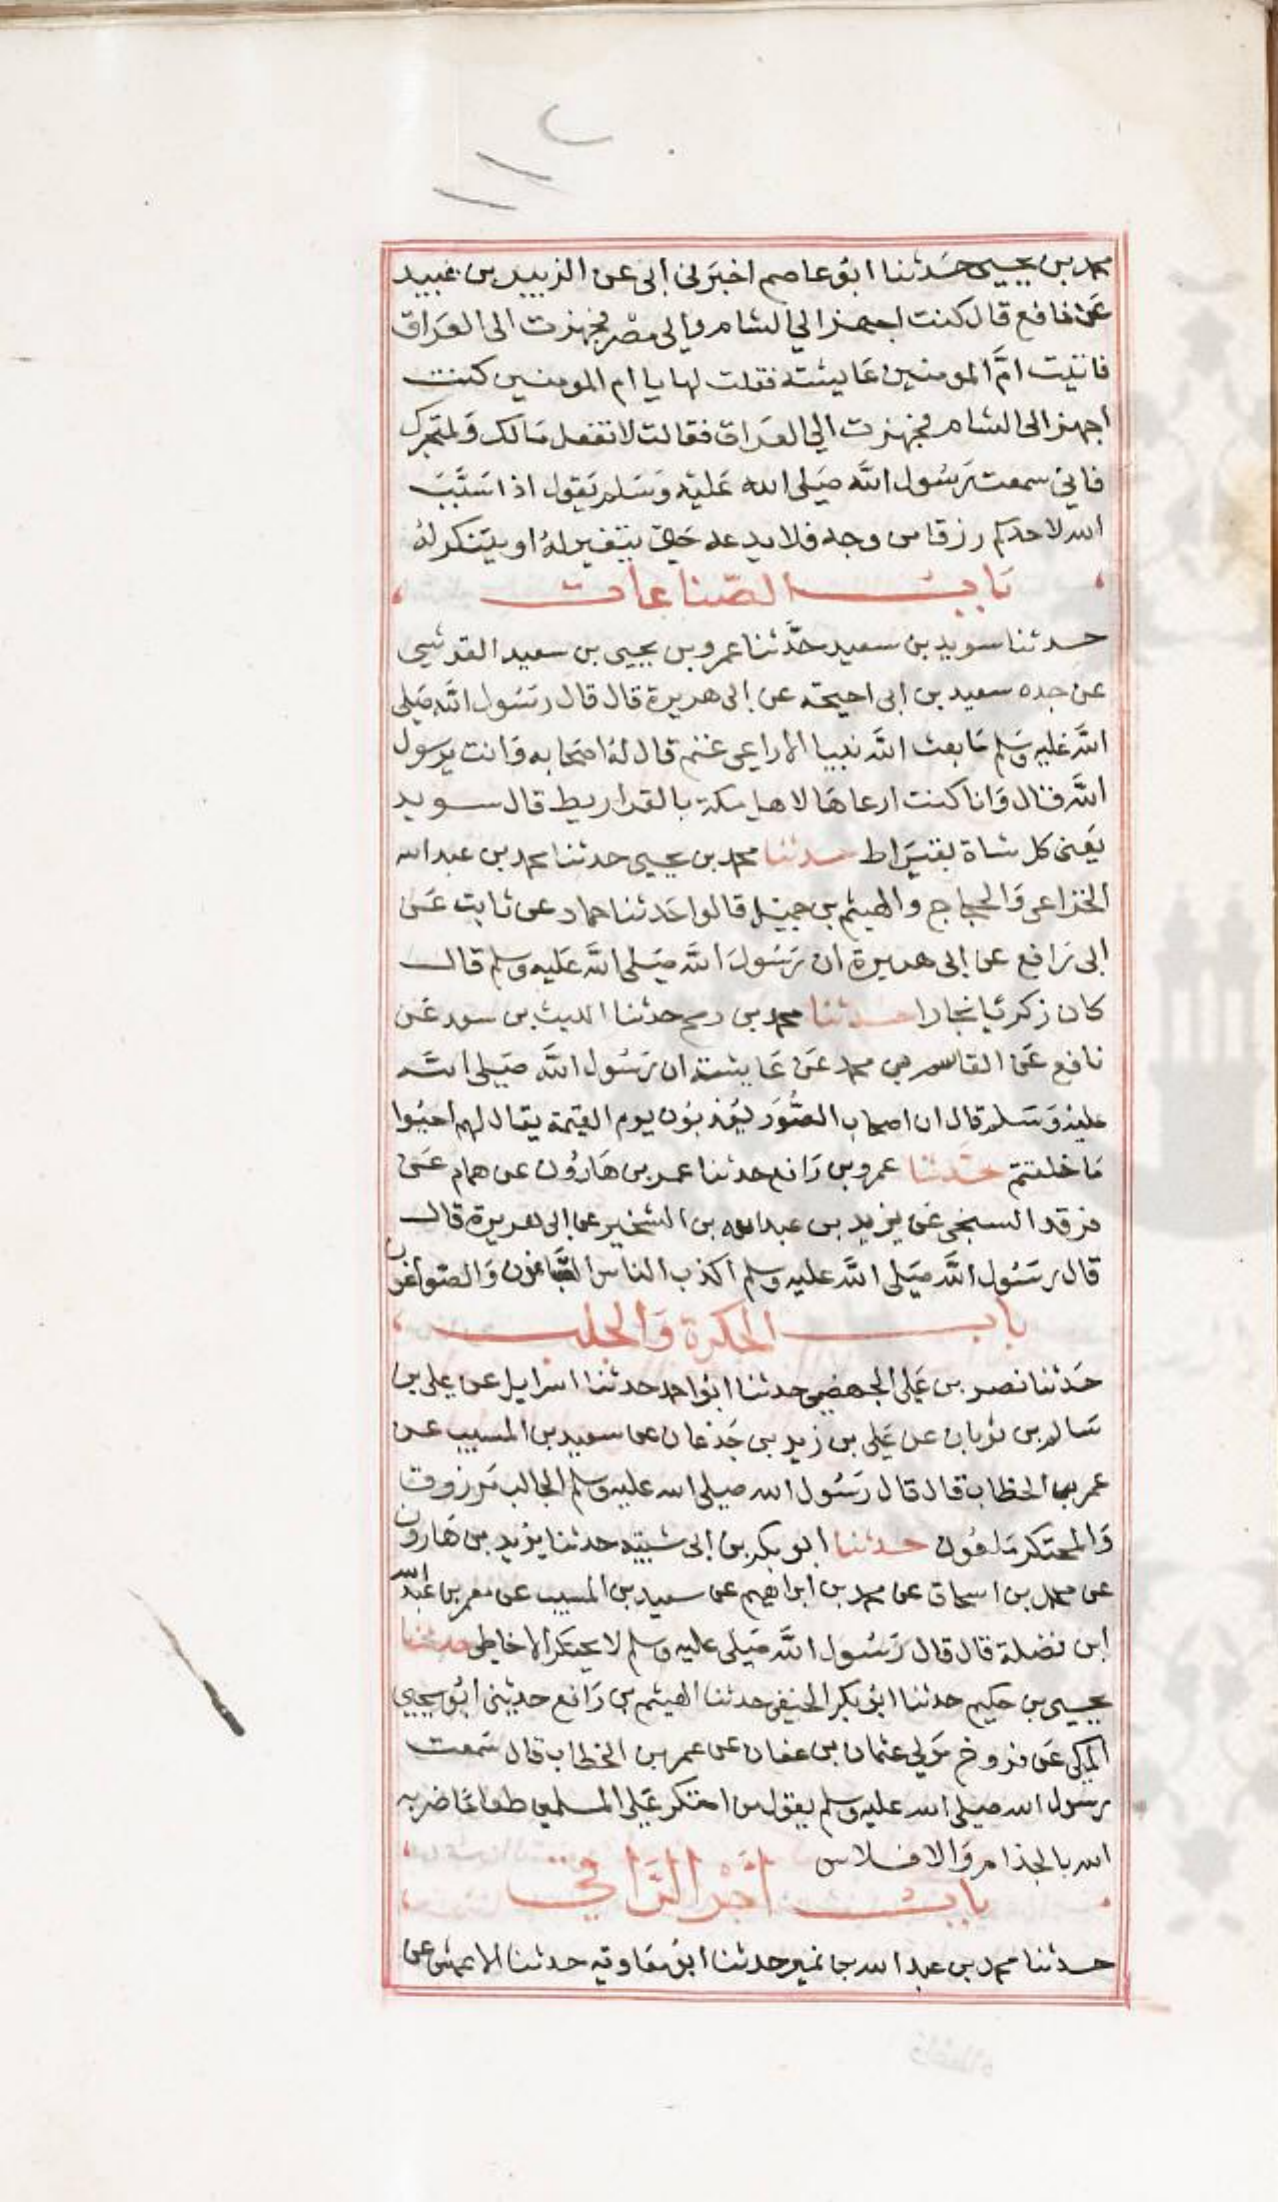 محمد بن يحيى حدثنا ابو عاصم اخبرني ابي عن الزبير بن عبيد
عن نافع قال كنت اجهز الي الشام والى مصر فجهزت الى العراق
فاتيت ام المومنين عايشة فقلت لها يا ام المومنين كنت
اجهز الى الشام فجهزت الي العراق فقالت لا تفعل مالك ولمتجرك
فاني سمعت رسول الله صلى الله عليه وسلم يقول اذا سبب
الله لاحدكم رزقا من وجه فلا يدعه حتى يتغير له او يتنكر له
باب الصناعات
حدثنا سويد بن سعيد حدثنا عمرو بن يحيى بن سعيد القرشي
عن جده سعيد بن ابى احيحة عن ابى هريرة قال قال رسول الله صلى
الله عليه وسلم ما بعث الله نبيا الا راعي غنم قال له اصحابه وانت يرسول
الله قال وانا كنت ارعاها لاهل مكة بالقراريط قال سويد
يعني كل شاة بقيراط حدثنا محمد بن يحيى حدثنا محمد بن عبد الله
الخزاعي والحجاج والهيثم بن جميل قالوا حدثنا حماد عن ثابت عن
ابى رافع عن ابى هريرة ان رسول الله صلى الله عليه وسلم قال
كان زكريا نجارا حدثنا محمد بن رمح حدثنا الليث بن سعد عن
نافع عن القاسم بن محمد عن عايشة ان رسول الله صلى الله
عليه وسلم قال ان اصحاب الصور يعذبون يوم القيمة يقال لهم احيوا
ما خلقتم حدثنا عمرو بن رافع حدثنا عمر بن هارون عن همام عن
فرقد السبخي عن يزيد بن عبد الله بن الشخير عن ابى هريرة قال
قال رسول الله صلى الله عليه وسلم اكذب الناس الصباغون والصواغون
باب الحكرة والجلب
حدثنا نصر بن علي الجهضمي حدثنا ابو احمد حدثنا اسرايل عن علي بن
سالم بن ثوبان عن علي بن زيد بن جذعان عن سعيد بن المسيب عن
عمر بن الخطاب قال قال رسول الله صلى الله عليه وسلم الجالب مرزوق
والمحتكر ملعون حدثنا ابو بكر بن ابى شيبة حدثنا يزيد بن هارون
عن محمد بن اسحاق عن محمد بن ابراهيم عن سعيد بن المسيب عن معمر بن عبد الله
ابن نضلة قال قال رسول الله صلى عليه وسلم لا يحتكر الا خاطي حدثنا
يحيى بن حكيم حدثنا ابو بكر الحنفي حدثنا الهيثم بن رافع حدثني ابو يحيى
المكي عن فروخ مولي عثمان بن عفان عن عمر بن الخطاب قال سمعت
رسول الله صلى الله عليه وسلم يقول من احتكر علي المسلمين طعاما ضربه
الله بالجذام والافلاس
باب اجر الراقي
حدثنا محمد بن عبد الله بن نمير حدثنا ابو معاوية حدثنا الاعمش عن